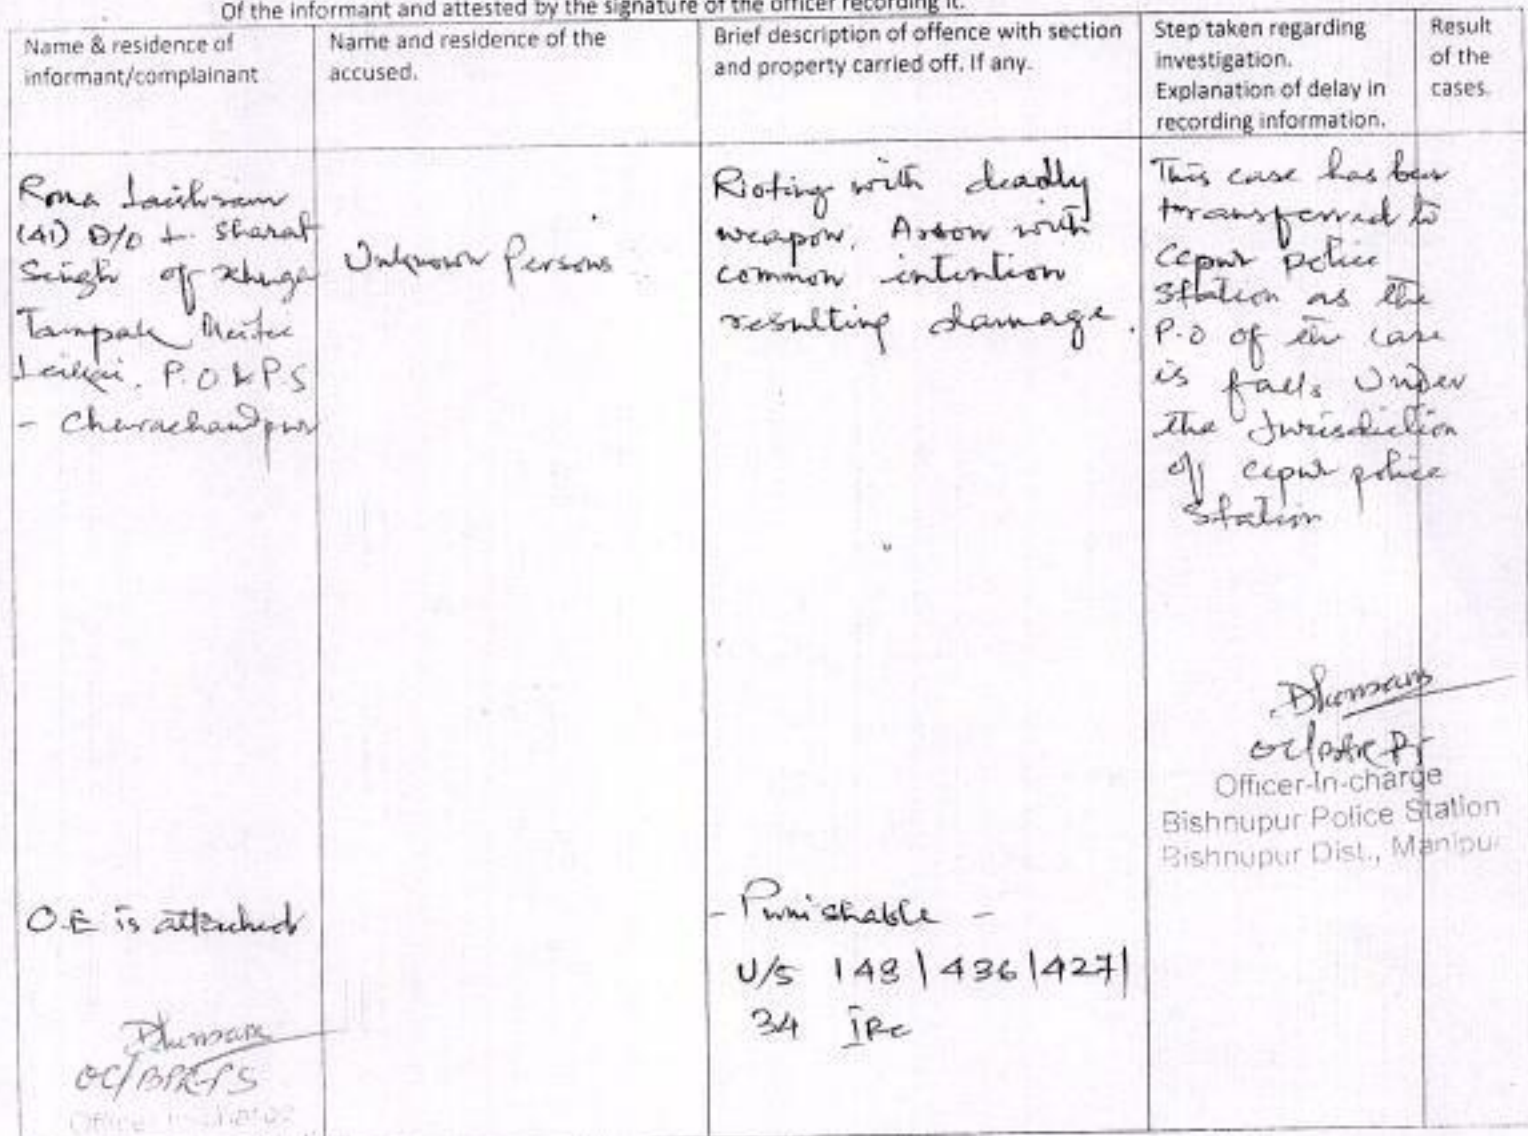 Of the informant and attested by the signature of the officer recording it.
Name & residence of
informant/complainant
Name and residence of the
accused.
Brief description of offence with section
and property carried off. If any.
Step taken regarding
investigation.
Explanation of delay in
recording information.
Result
of the
cases.
Roma Laishram
(41) D/O L. Sharat
Singh of Khuga
Tampak Meitei
Leikai, P.O & P.S
- Churachandpur
O.E is attached
OC/BPR-PS
Officer-In-charge
Unknown Persons
Rioting with deadly
weapon, Arson with
common intention
resulting damage.
- Punishable -
U/S 148|436|427|
34 IPC
This case has been
transferred to
Ccpur Police
Station as the
P.O of the case
is falls Under
the Jurisdiction
of ccpur police
Station
OC/BPR PS
Officer-In-charge
Bishnupur Police Station
Bishnupur Dist., Manipur